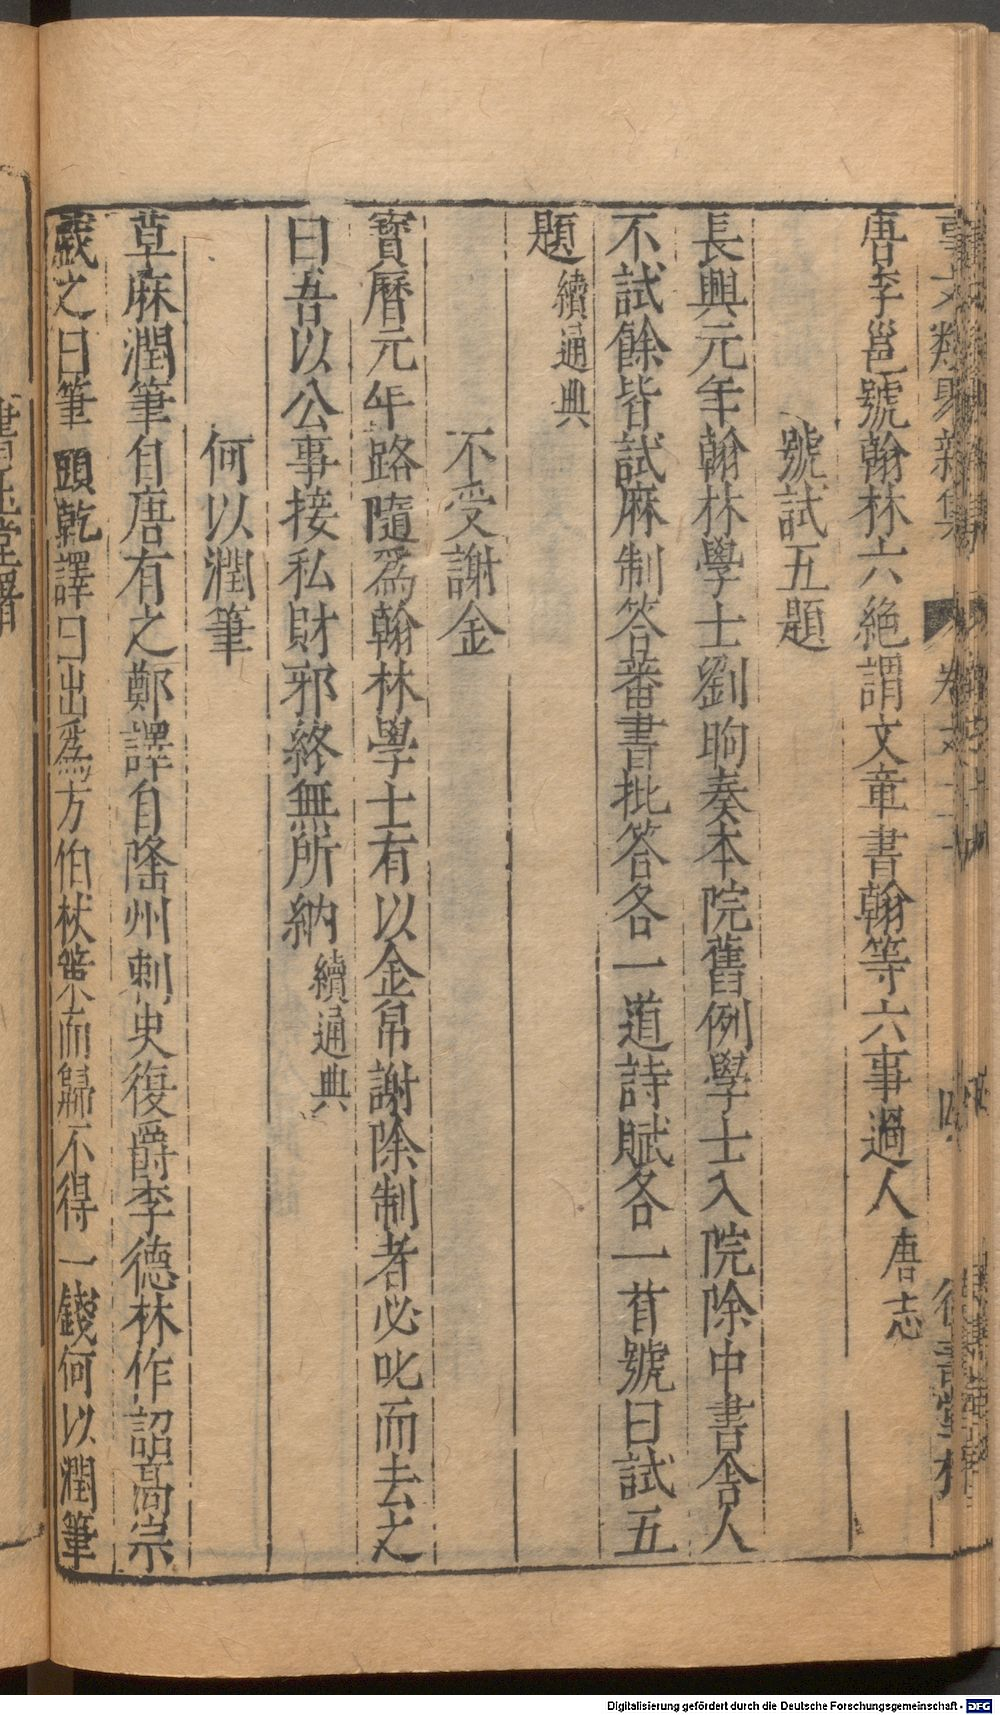 唐李邕號翰林六絕謂文章書翰等六事過人唐志
號試五題
長興元年翰林學士劉昫奏本院舊例學士入院除中書舍人
不試餘皆試麻制答蕃書批答各一道詩賦各一首號曰試五
題續通典
不受謝金
寳曆元年路隨爲翰林學士有以金帛謝除制者必叱而去之
曰吾以公事接私財邪終無所納續通典
何以潤筆
草麻潤筆自唐有之鄭譯自隆州刺史復爵李德林作詔高宗
戲之曰筆頭乾譯曰出爲方伯杖策而歸不得一錢何以潤筆
Digitalisierung gefördert durch die Deutsche Forschungsgemeinschaft - DFG